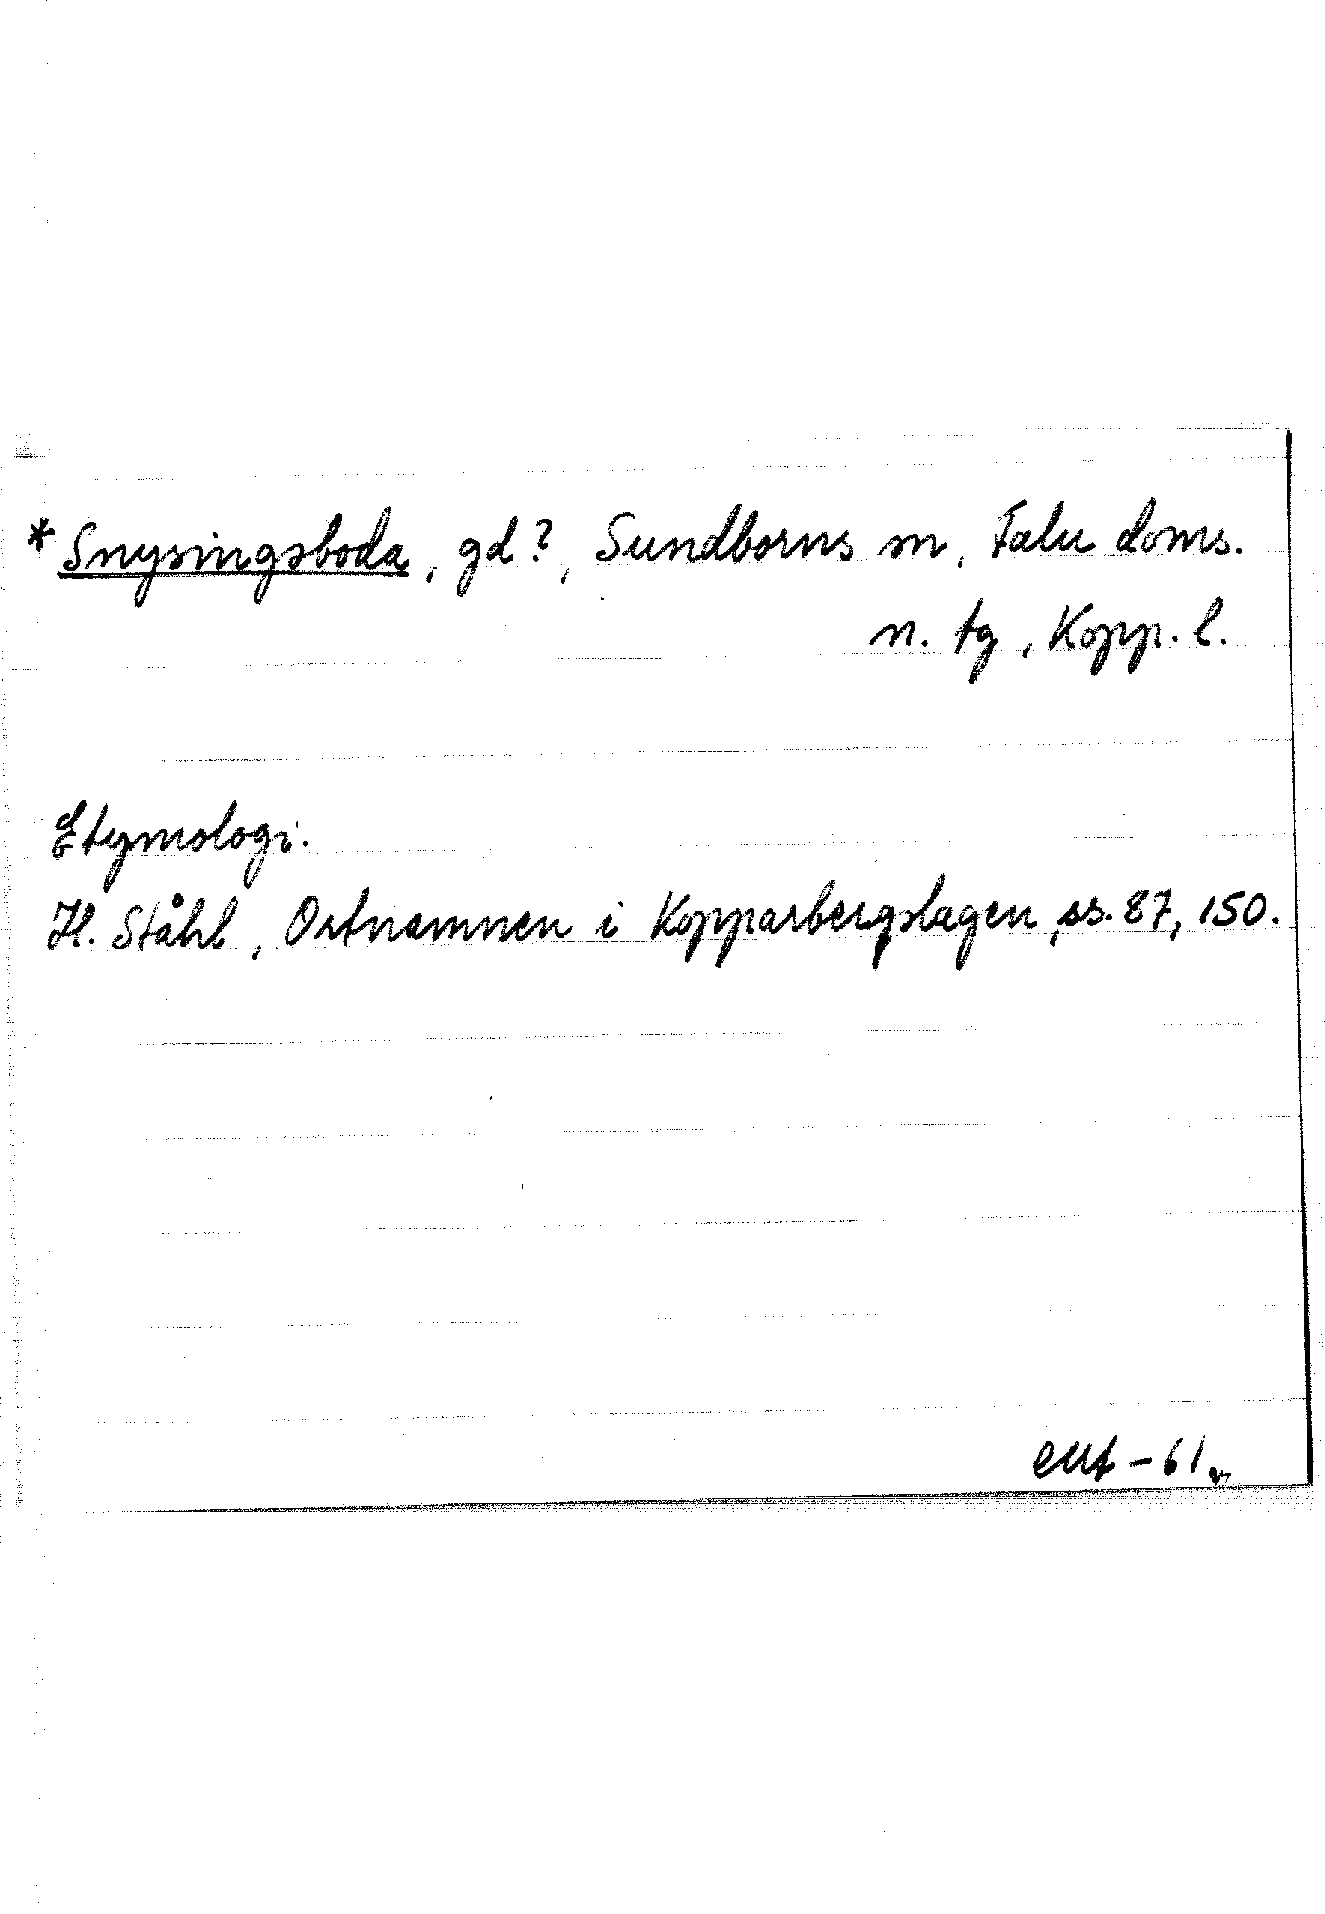 *Snysingsboda, gd?, Sundborns sn, Falu doms.
n. tg, Kopp. l.
Etymologi.
H. Ståhl, Ortnamnen i Kopparbergslagen, ss. 87, 150.
-61